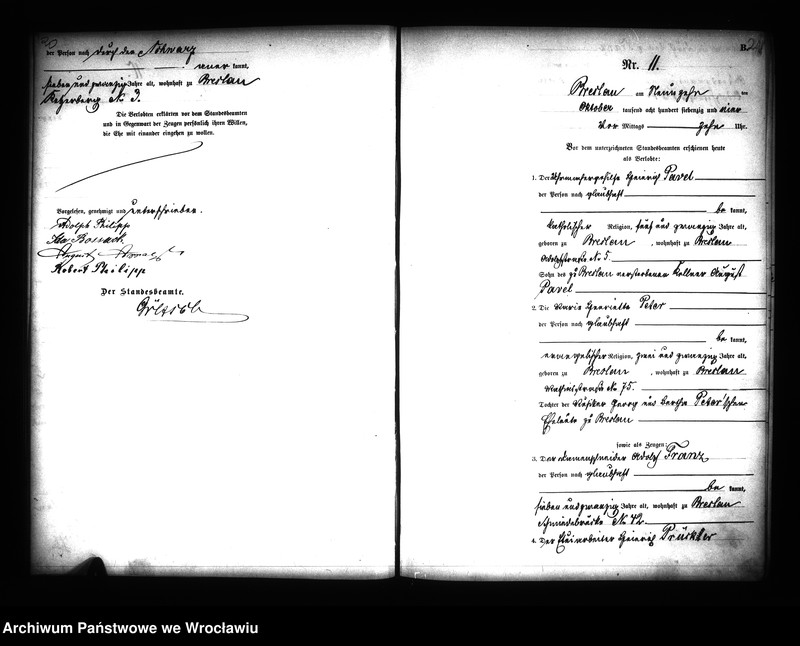 der Person nach durch den Schwarz
aner kannt,
sieben und zwanzig Jahre alt, wohnhaft zu Breslau
No 3.
Die Verlobten erklärten vor dem Standesbeamten
und in Gegenwart der Zeugen persönlich ihren Willen,
die Ehe mit einander eingehen zu wollen.
Vorgelesen, genehmigt und unterschrieben.
Adolph Philipp
Ida
August
Robert Philipp
Der Standesbeamte.
B.
Nr. 11.
Breslau am Neunzehn ten
Oktober tausend acht hundert siebenzig und vier
Vor Mittags zehn Uhr.
Vor dem unterzeichneten Standesbeamten erschienen heute
als Verlobte:
1. Der Uhrmachergehilfe Heinrich Pavel
der Person nach glaubhaft
be kannt,
katholischer Religion, fünf und zwanzig Jahre alt,
geboren zu Breslau, wohnhaft zu Breslau
Adolfstraße No 5.
Sohn des zu Breslau verstorbenen Kellner August
Pavel
2. Die Marie Henriette Peter
der Person nach glaubhaft
be kannt,
evangelischer Religion, zwei und zwanzig Jahre alt,
geboren zu Breslau, wohnhaft zu Breslau
No 75.
Tochter der Georg und Bertha Peter'schen
Eheleute zu Breslau
sowie als Zeugen:
3. Der Adolf Franz
der Person nach glaubhaft
be kannt,
sieben und zwanzig Jahre alt, wohnhaft zu Breslau
Schmiedebrücke No 42
4. Der Heinrich
Archiwum Państwowe we Wrocławiu